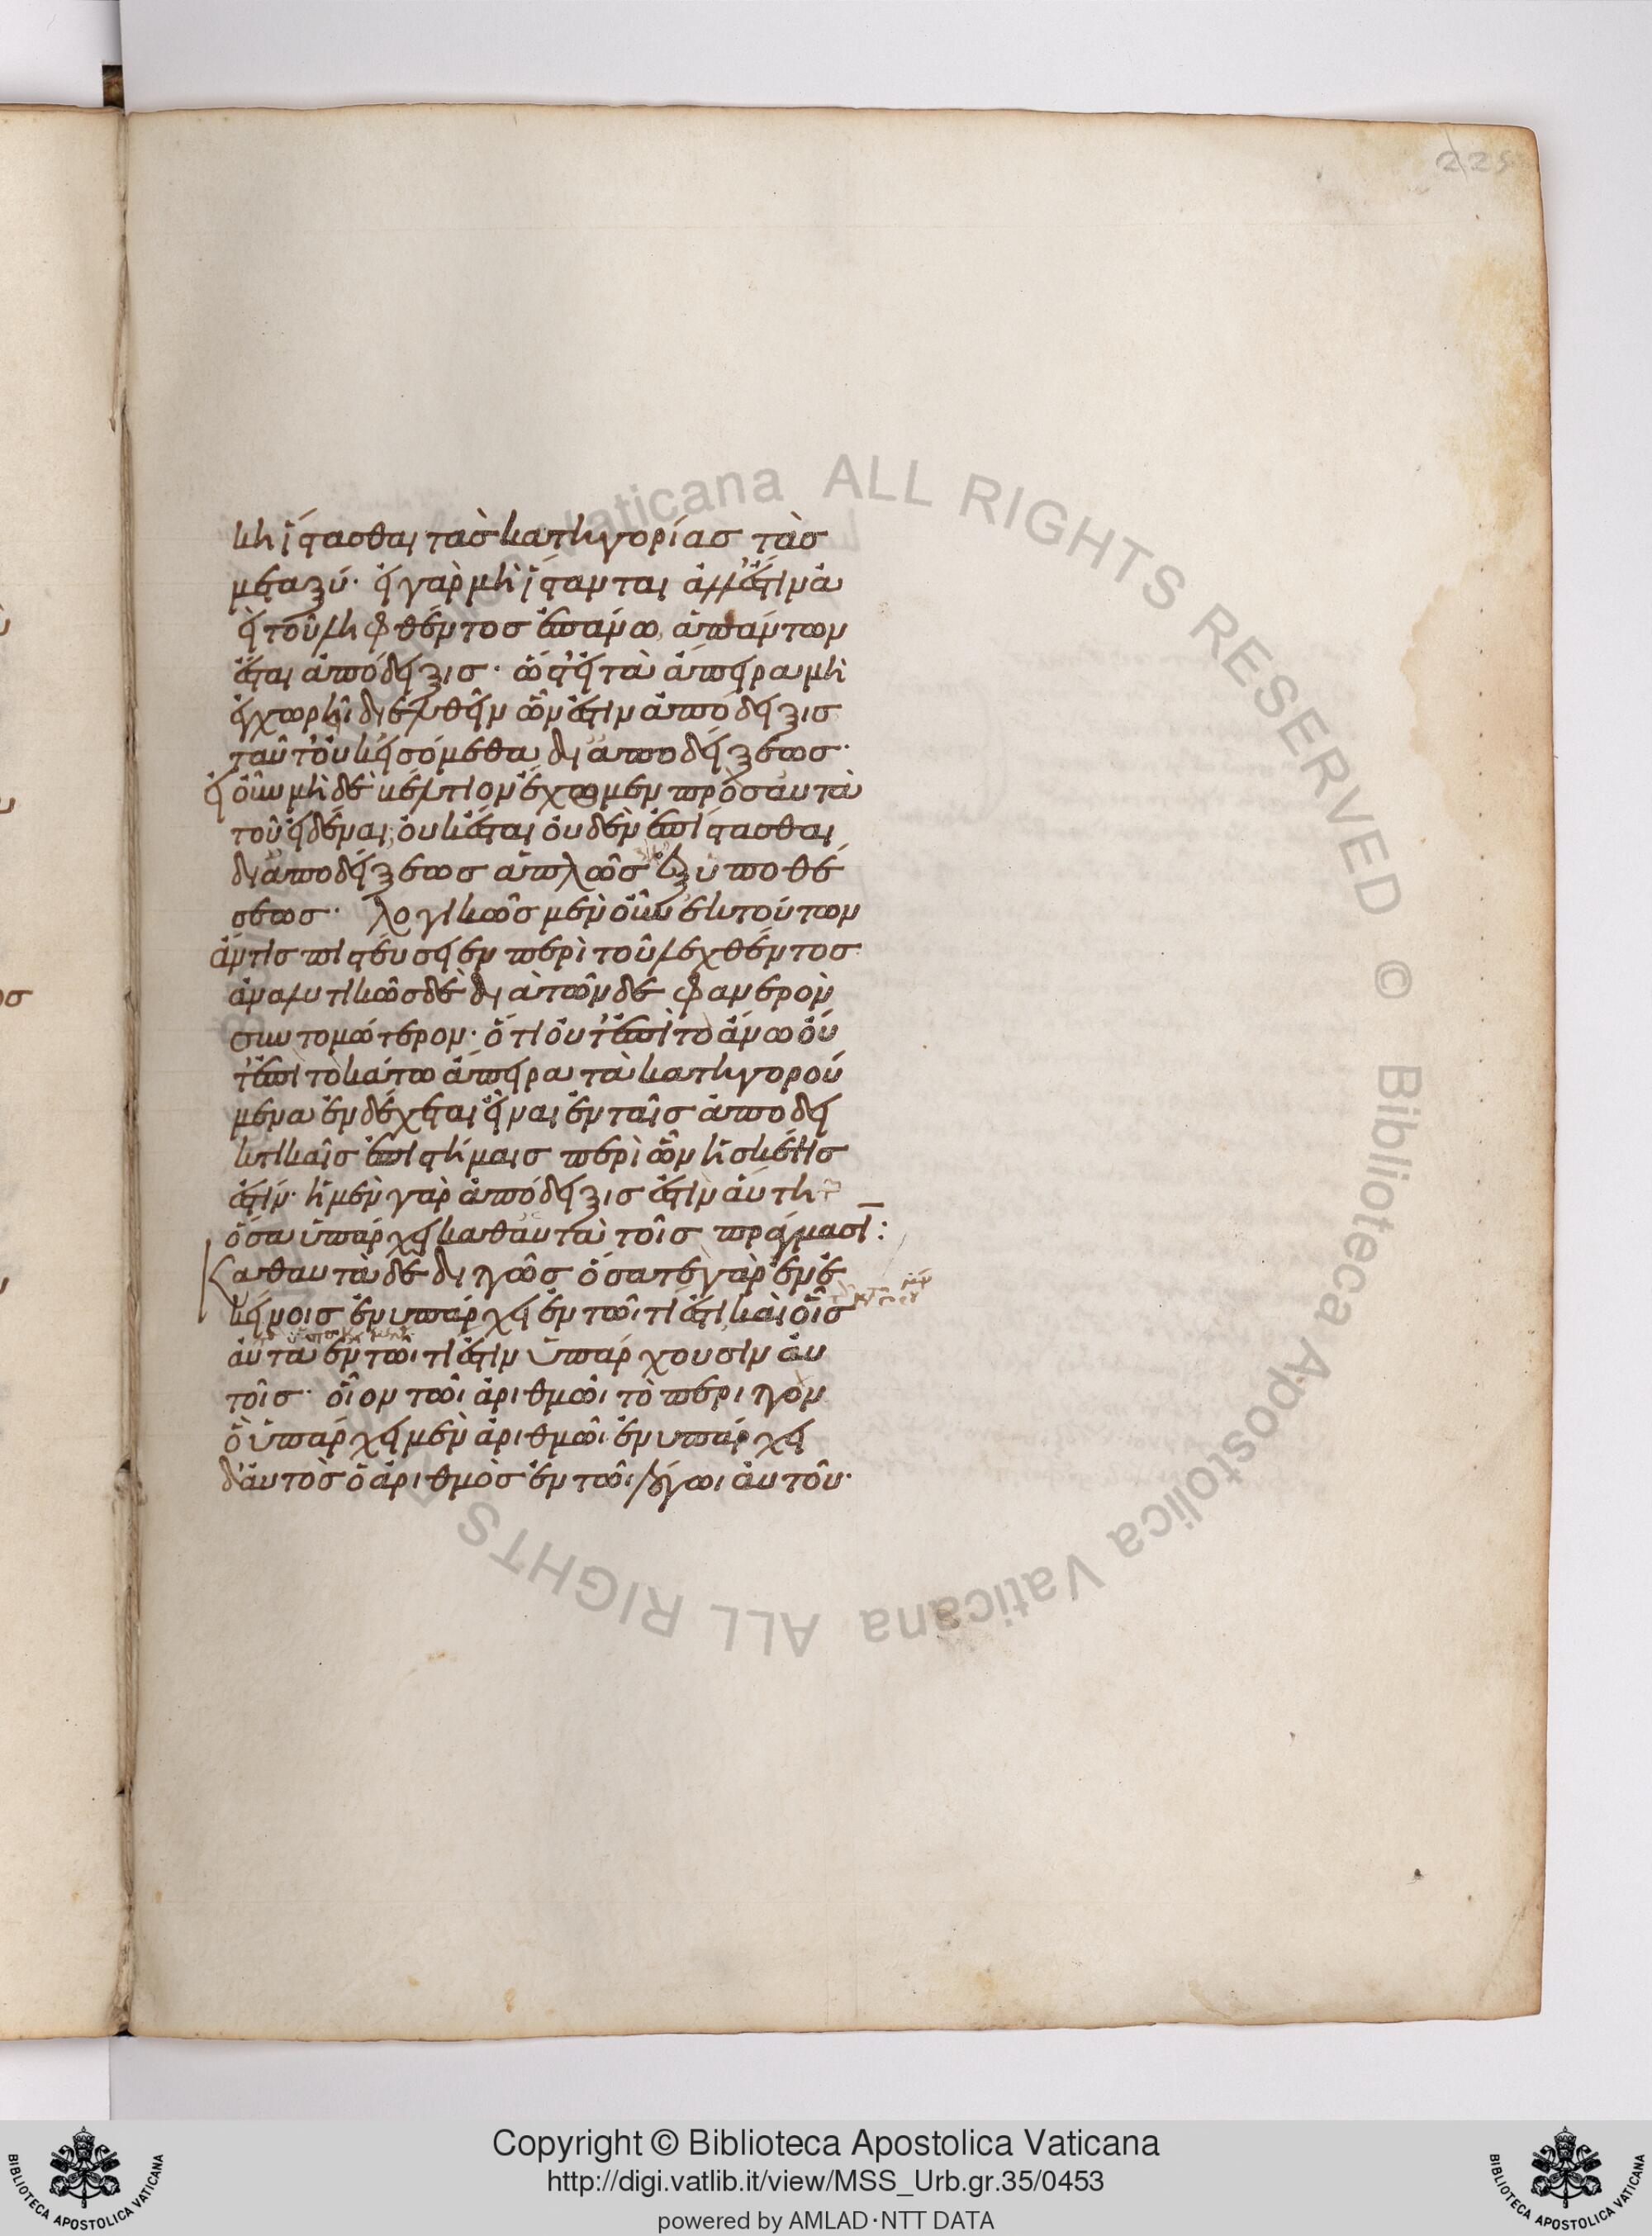 225
κη ἵστασθαι τὰσ κατηγορίασ τὰσ
μεταξύ· εἰ γὰρ μὴ ἵστανται ἀλλ' ἔστιν ἀ
εὶ τοῦ ληφθέντοσ ἐπάνω, ἁπάντων
ἔσται ἀπόδειξισ· ὥστ' εἰ τὰ ἄπειρα μὴ
ἐγχωρῆι διελθεῖν ὧν ἔστιν ἀπόδειξισ
ταῦτ' οὐκ εἰσόμεθα δι' ἀποδείξεωσ·
εἰ οὖν μὴ δὲ βέλτιον ἔχομεν πρὸσ αὐτὰ
τοῦ εἰδέναι, οὐκ ἔσται οὐδὲν ἐπίστασθαι
δι' ἀποδείξεωσ ἁπλῶσ ἀλλ' ἐξ ὑποθέ
σεωσ· λογικῶσ μὲν οὖν ἐκ τούτων
ἄν τισ πιστεύσειεν περὶ τοῦ λεχθέντοσ
ἀναλυτικῶσ δὲ διὰ τῶνδε φανερὸν
συντομώτερον· ὅτι οὔτ' ἐπὶ τὸ ἄνω οὔ
τ' ἐπὶ τὸ κάτω ἄπειρα τὰ κατηγορού
μενα ἐνδέχεται εἶναι ἐν ταῖσ ἀποδει
κτικαῖσ ἐπιστήμαισ περὶ ὧν ἡ σκέψισ
ἐστίν· ἡ μὲν γὰρ ἀπόδειξισ ἐστὶν αὐτη
ὅσα ὑπάρχει καθ' αὑτὰ τοῖσ πράγμασι:
Καθ' αὑτὰ δὲ διττῶσ ὅσα τε γὰρ ἐν ἐ
κείνοισ ἐνυπάρχει ἐν τῶι τί ἐστι, καὶ οἷσ
αὐτὰ ἐν τῶι τί ἐστιν ὑπάρχουσιν αὐ
τοῖσ· οἷον τῶι ἀριθμῶι τὸ περιττὸν
ὃ ὑπάρχει μὲν ἀριθμῶι ἐνυπάρχει
δ' αὐτὸσ ὁ ἀριθμὸσ ἐν τῶι λόγωι αὐτοῦ·
Biblioteca Apostolica Vaticana ALL RIGHTS RESERVED © Biblioteca Apostolica Vaticana ALL RIGHTS RESERVED ©
Copyright © Biblioteca Apostolica Vaticana
http://digi.vatlib.it/view/MSS_Urb.gr.35/0453
powered by AMLAD·NTT DATA
BIBLIOTECA APOSTOLICA VATICANA
BIBLIOTECA APOSTOLICA VATICANA